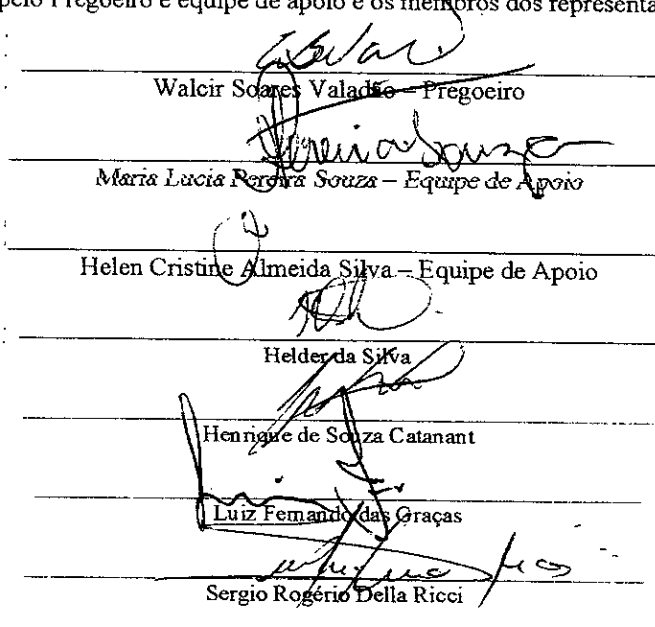 pelo Pregoeiro e equipe de apoio e os membros dos representa
Walcir Soares Valadão – Pregoeiro
Pereira Souza
Maria Lucia Pereira Souza – Equipe de Apoio
Helen Cristine Almeida Silva – Equipe de Apoio
Helder da Silva
Henrique de Souza Catanant
Luiz Fernando das Graças
Sergio Rogério Della Ricci